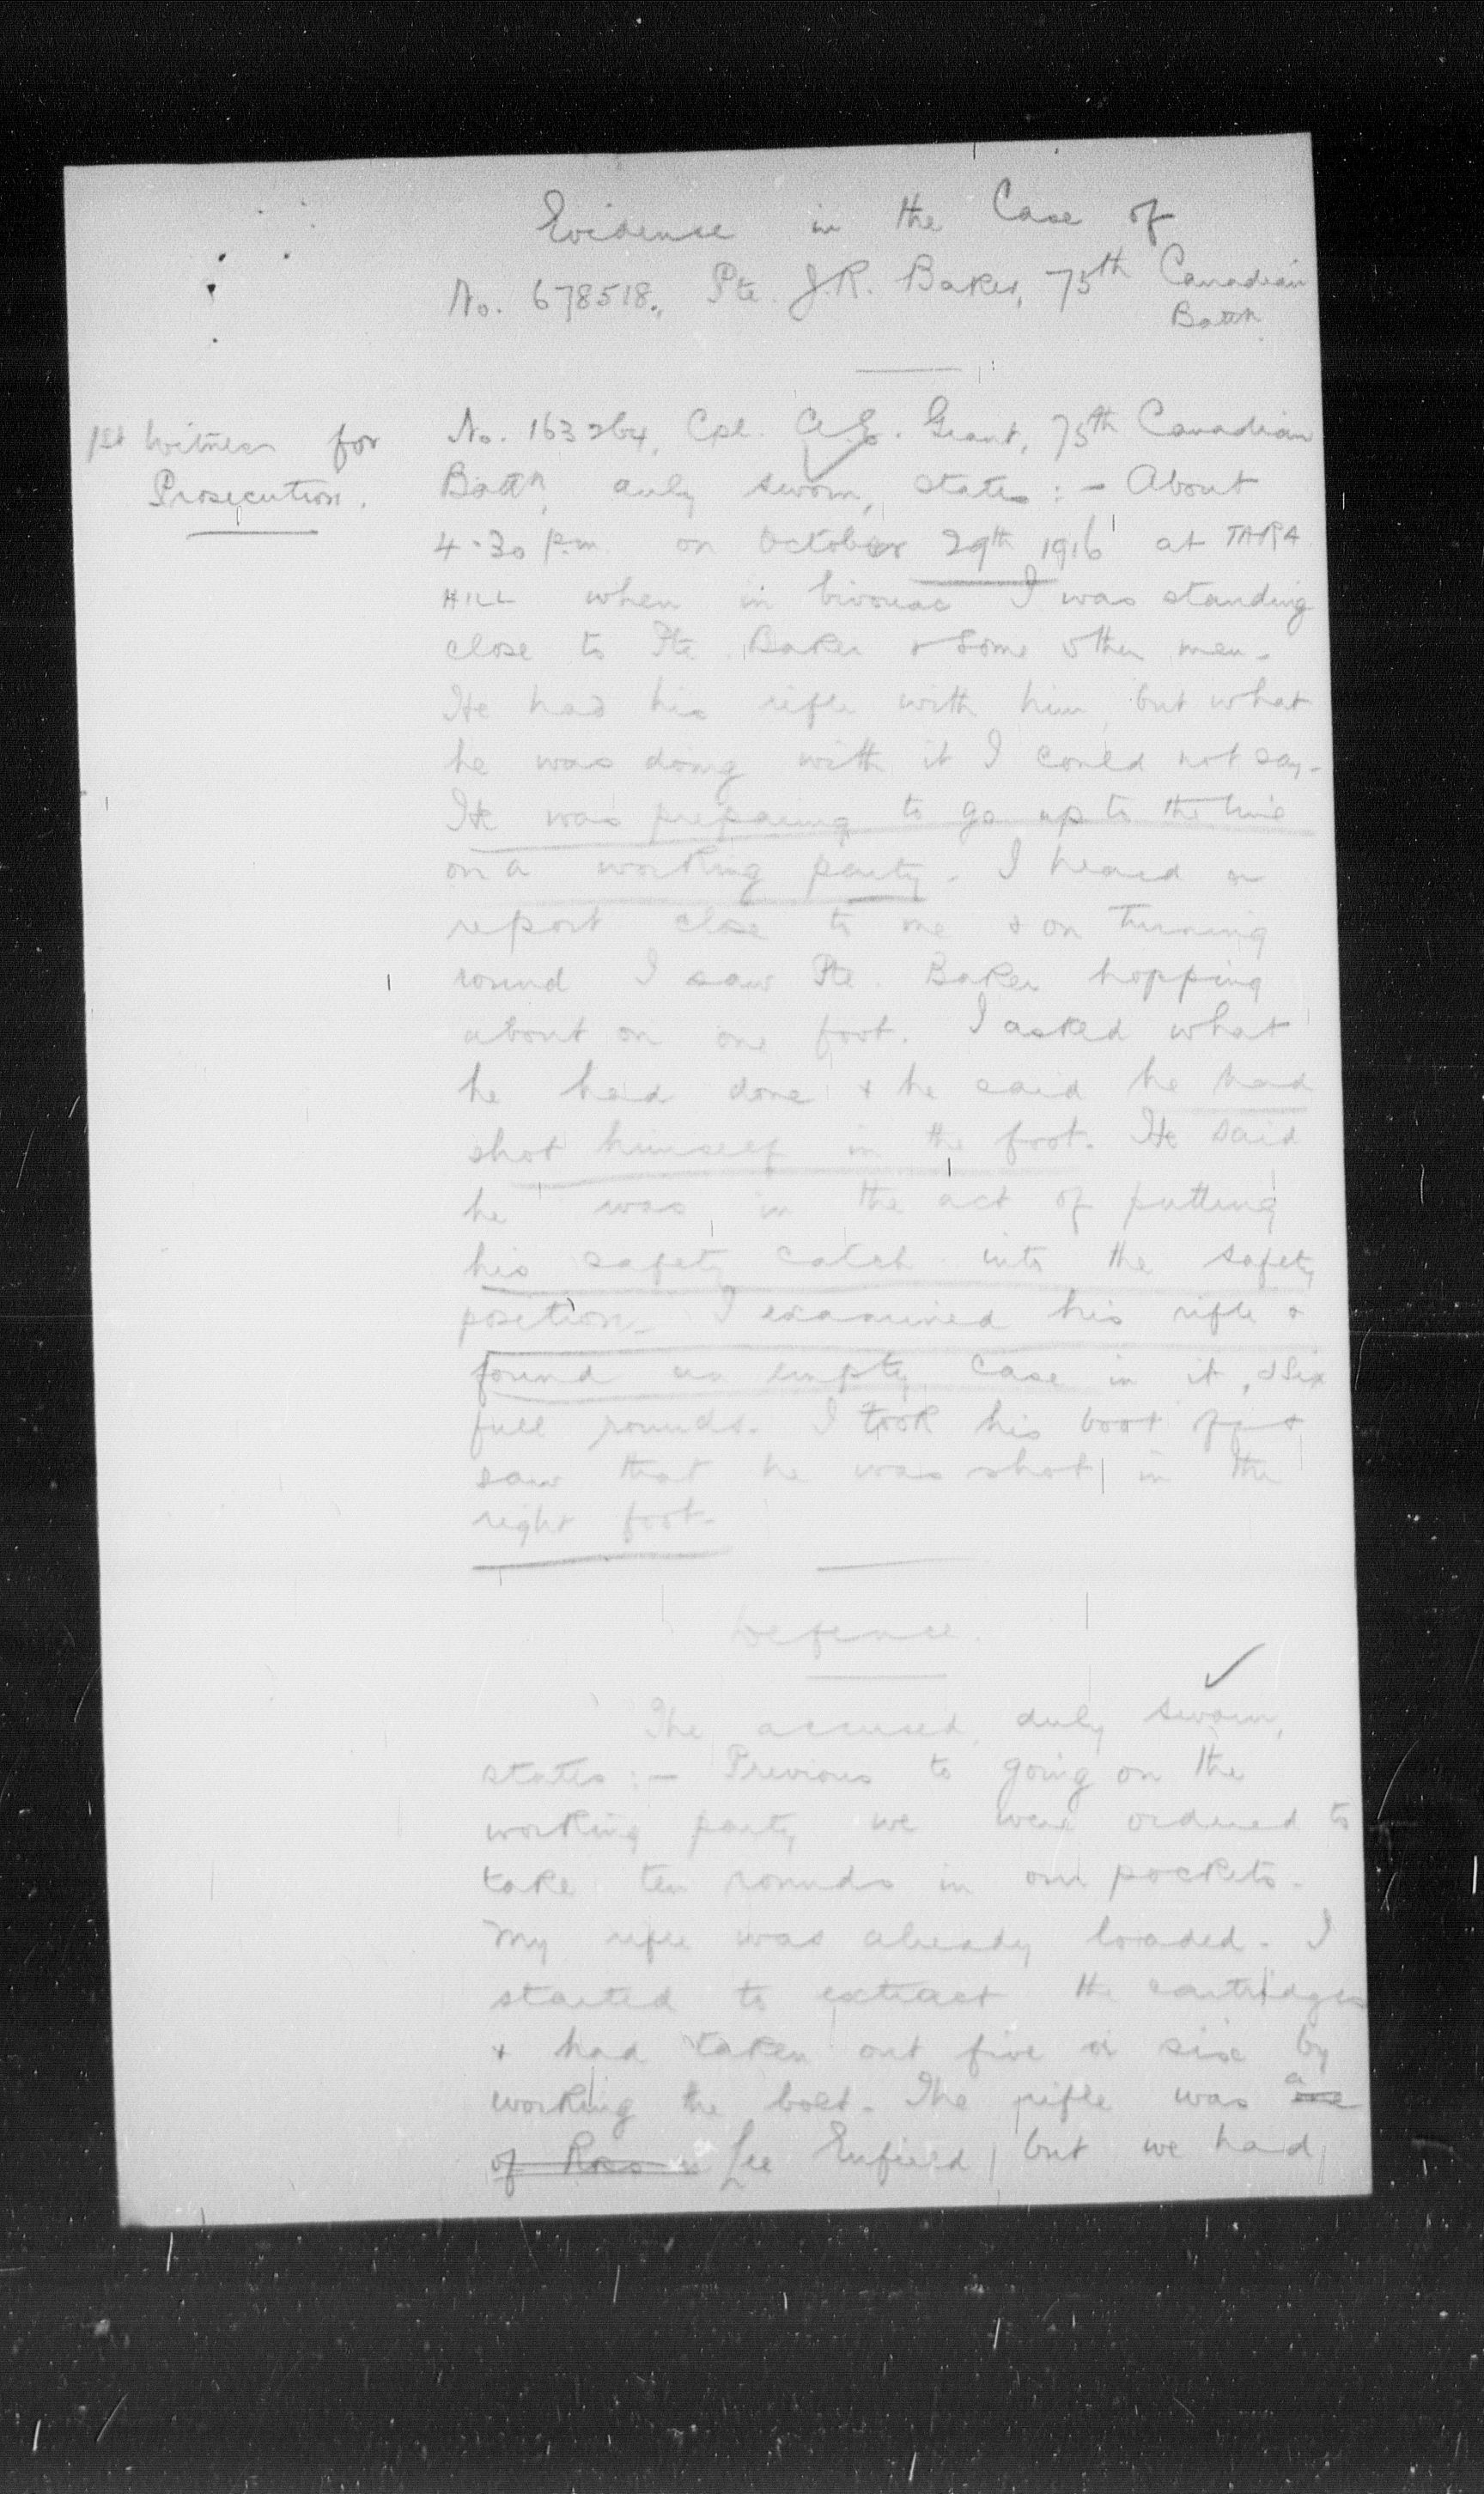 Evidence in the Case of
No. 678518., Pte. J.R. Baker, 75th Canadian
Battn.
1st Witness for
Prosecution.
No. 163264, Cpl. A.E. Grant, 75th Canadian
Battn, duly sworn, states :- About
4.30 p.m. on October 29th 1916 at TARA
HILL when in bivouac I was standing
close to Pte. Baker & some other men.
He had his rifle with him, but what
he was doing with it I could not say.
He was preparing to go up to the line
on a working party. I heard a
report close to me & on turning
round I saw Pte. Baker hopping
about on one foot. I asked what
he had done & he said he had
shot himself in the foot. He said
he was in the act of putting
his safety catch into the safety
position. I examined his rifle &
found an empty case in it, & six
full rounds. I took his boot off &
saw that he was shot in the
right foot.
Defence.
The accused, duly sworn,
states :- Previous to going on the
working party we were ordered to
take ten rounds in our pockets.
My rifle was already loaded. I
started to extract the cartridges
& had taken out five or six by
working the bolt. The rifle was a
of Ross Lee Enfield, but we had